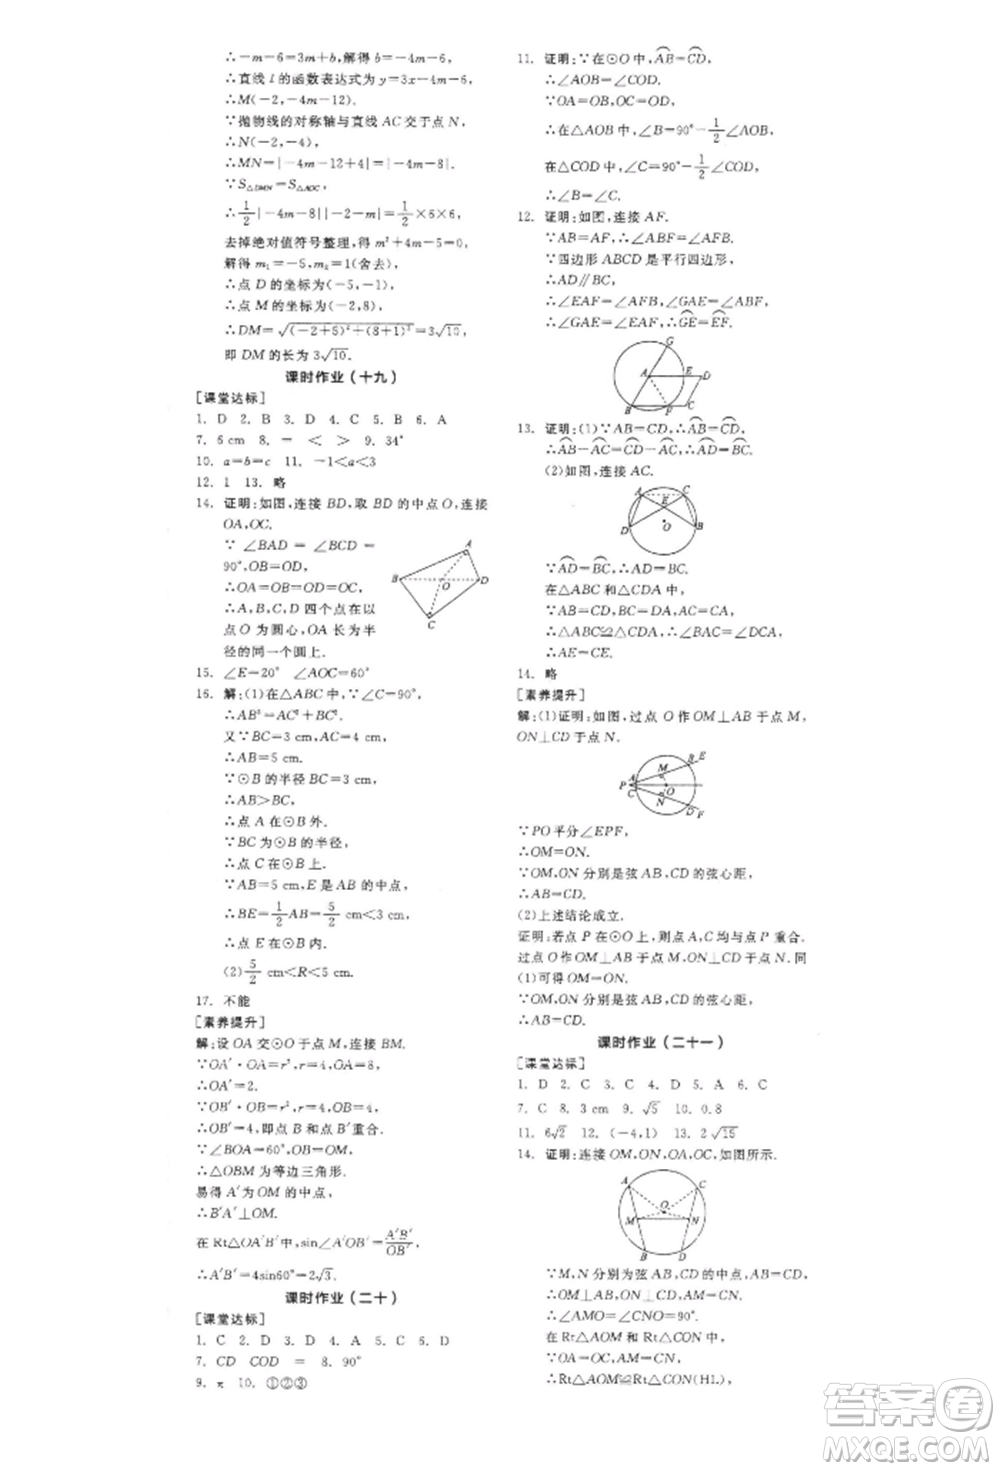 ∴－m－6＝3m＋b,解得 b＝－4m－6,
∴直线 l 的函数表达式为 y＝3x－4m－6,
∴M(－2,－4m－12).
∵抛物线的对称轴与直线 AC 交于点 N,
∴N(－2,－4),
∴MN＝|－4m－12＋4|＝|－4m－8|.
∵S△DMN＝S△AOC,
∴1/2|－4m－8||－2－m|＝1/2×6×6,
去掉绝对值符号整理,得 m²＋4m－5＝0,
解得 m₁＝－5,m₂＝1(舍去),
∴点 D 的坐标为(－5,－1),
∴点 M 的坐标为(－2,8),
∴DM＝√((－2＋5)²＋(8＋1)²)＝3√10,
即 DM 的长为 3√10.
课时作业(十九)
[课堂达标]
1. D 2. B 3. D 4. C 5. B 6. A
7. 6 cm 8. ＝ ＜ ＞ 9. 34°
10. a＝b＝c 11. －1＜a＜3
12. 1 13. 略
14. 证明:如图,连接 BD,取 BD 的中点 O,连接
OA,OC.
∵∠BAD＝∠BCD＝
90°,OB＝OD,
∴OA＝OB＝OD＝OC,
∴A,B,C,D 四个点在以
点 O 为圆心,OA 长为半
径的同一个圆上.
A
B O D
C
15. ∠E＝20° ∠AOC＝60°
16. 解:(1)在△ABC 中,∵∠C＝90°,
∴AB²＝AC²＋BC².
又∵BC＝3 cm,AC＝4 cm,
∴AB＝5 cm.
∵⊙B 的半径 BC＝3 cm,
∴AB＞BC,
∴点 A 在⊙B 外.
∵BC 为⊙B 的半径,
∴点 C 在⊙B 上.
∵AB＝5 cm,E 是 AB 的中点,
∴BE＝1/2AB＝5/2 cm＜3 cm,
∴点 E 在⊙B 内.
(2)5/2 cm＜R＜5 cm.
17. 不能
[素养提升]
解:设 OA 交⊙O 于点 M,连接 BM.
∵OA′·OA＝r²,r＝4,OA＝8,
∴OA′＝2.
∵OB′·OB＝r²,r＝4,OB＝4,
∴OB′＝4,即点 B 和点 B′重合.
∵∠BOA＝60°,OB＝OM,
∴△OBM 为等边三角形.
易得 A′为 OM 的中点,
∴B′A′⊥OM.
在 Rt△OA′B′中,sin∠A′OB′＝A′B′/OB′,
∴A′B′＝4sin60°＝2√3.
课时作业(二十)
[课堂达标]
1. C 2. D 3. D 4. A 5. C 6. D
7. CD COD ＝ 8. 90°
9. π 10. ①②③
11. 证明:∵在⊙O 中,AB＝CD,
∴∠AOB＝∠COD.
∵OA＝OB,OC＝OD,
∴在△AOB 中,∠B＝90°－1/2∠AOB,
在△COD 中,∠C＝90°－1/2∠COD,
∴∠B＝∠C.
12. 证明:如图,连接 AF.
∵AB＝AF,∴∠ABF＝∠AFB.
∵四边形 ABCD 是平行四边形,
∴AD∥BC,
∴∠EAF＝∠AFB,∠GAE＝∠ABF,
∴∠GAE＝∠EAF,∴GE＝EF.
G
A E D
B F C
13. 证明:(1)∵AB＝CD,∴AB＝CD,
∴AB－AC＝CD－AC,∴AD＝BC.
(2)如图,连接 AC.
A C
E
D O B
∵AD＝BC,∴AD＝BC.
在△ABC 和△CDA 中,
∵AB＝CD,BC＝AD,AC＝CA,
∴△ABC≌△CDA,∴∠BAC＝∠DCA,
∴AE＝CE.
14. 略
[素养提升]
解:(1)证明:如图,过点 O 作 OM⊥AB 于点 M,
ON⊥CD 于点 N.
M B E
A
P O
C
N D F
∵PO平分∠EPF,
∴OM＝ON.
∵OM,ON 分别是弦 AB,CD 的弦心距,
∴AB＝CD.
(2)上述结论成立.
证明:若点 P 在⊙O 上,则点 A,C均与点 P 重合.
过点 O作 OM⊥AB 于点 M,ON⊥CD 于点 N. 同
(1)可得 OM＝ON.
∵OM,ON 分别是弦 AB,CD 的弦心距,
∴AB＝CD.
课时作业(二十一)
[课堂达标]
1. D 2. C 3. C 4. B 5. D 6. C
7. C 8. 3 cm 9. √5 10. 0.8
11. 6√2 12. (－4,1) 13. 2√15
14. 证明:连接 OM,ON,OA,OC,如图所示.
A C
O
M N
B D
∵M,N 分别为弦 AB,CD 的中点,
∴OM⊥AB,ON⊥CD,
∴∠AMO＝∠CNO＝90°.
在 Rt△AOM 和 Rt△CON 中,
∵OA＝OC,AM＝CN,
∴Rt△AOM≌Rt△CON(HL),
答案圈
MXQE.COM